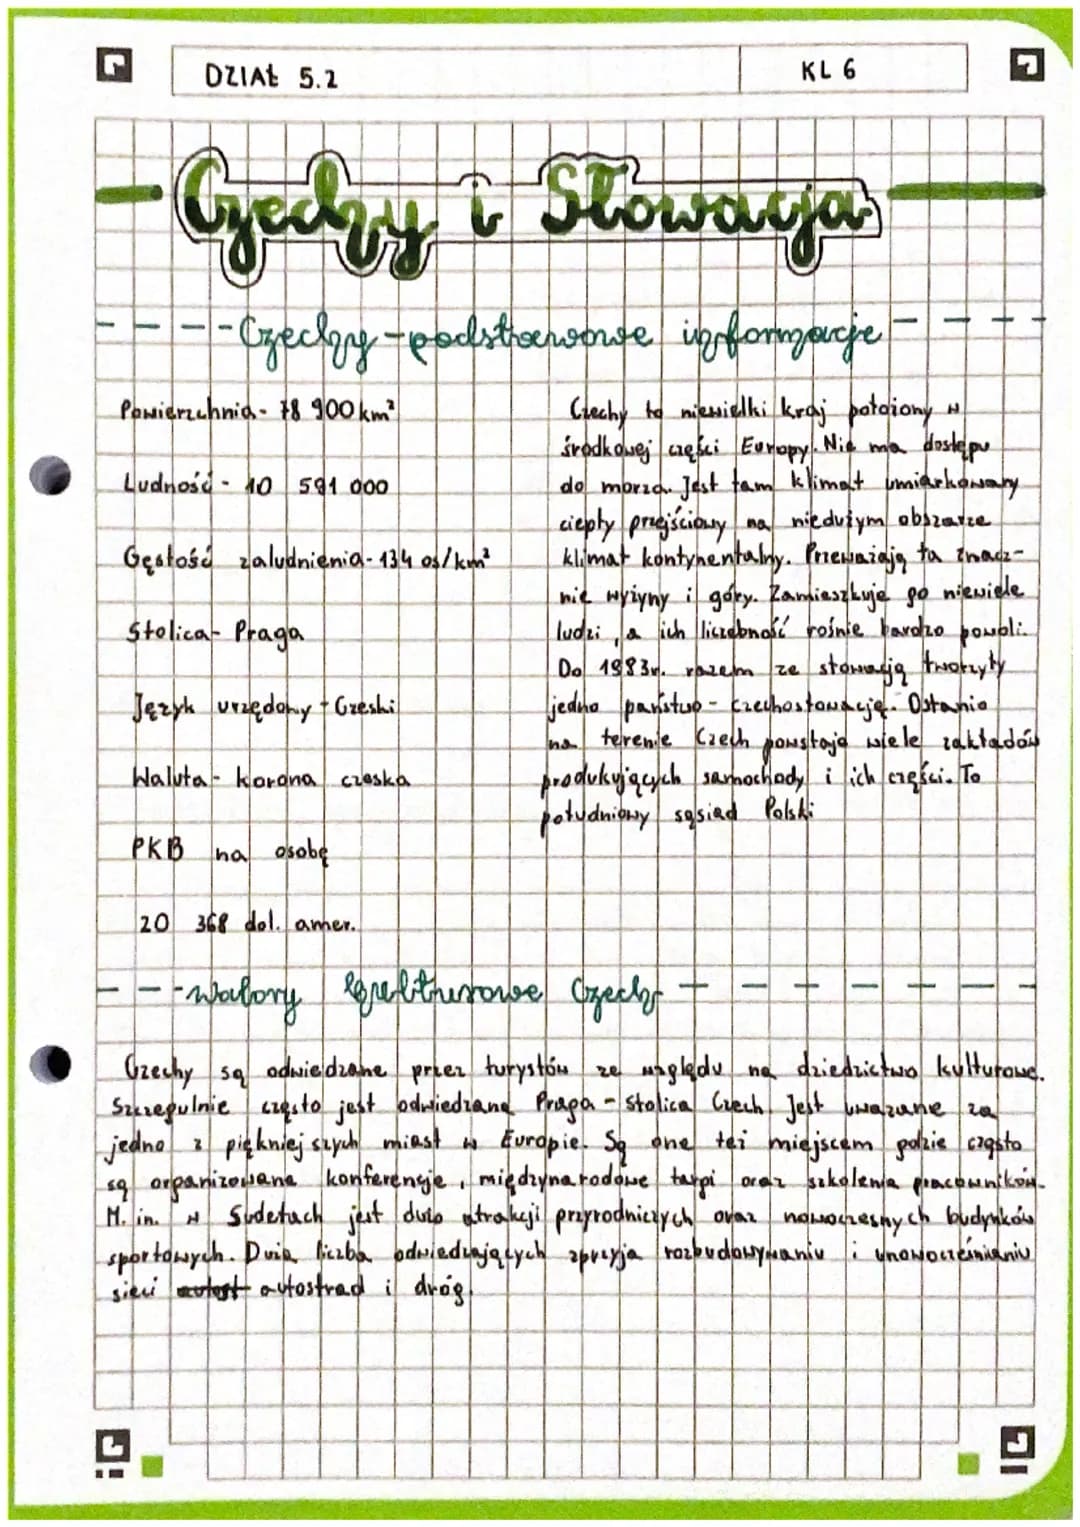 DZIAŁ 5.2
KL 6
Czechy i Słowacja
Czechy - podstawowe informacje
Powierzchnia - 78 900 km²
Ludność - 10 591 000
Gęstość zaludnienia - 134 os/km²
Stolica - Praga
Język urzędowy - Czeski
Waluta - korona czeska
PKB na osobę
20 368 dol. amer.
Czechy to niewielki kraj położony w
środkowej części Europy. Nie ma dostępu
do morza. Jest tam klimat umiarkowany
ciepły przejściowy na niedużym obszarze
klimat kontynentalny. Przeważają tu znacz-
nie wyżyny i góry. Zamieszkuje go niewiele
ludzi, a ich liczebność rośnie bardzo powoli.
Do 1993r. razem ze słowacją tworzyły
jedno państwo - czechosłowację. Ostanio
na terenie Czech powstaje wiele zakładów
produkujących samochody i ich części. To
południowy sąsiad Polski
walory kulturowe Czech
Czechy są odwiedzane przez turystów ze względu na dziedzictwo kulturowe.
Szczegulnie często jest odwiedzana Praga - stolica Czech. Jest uważane za
jedno z piękniejszych miast w Europie. Są one też miejscem gdzie często
są organizowane konferencje, międzynarodowe targi oraz szkolenia pracowników.
M. in. w Sudetach jest dużo atrakcji przyrodniczych oraz nowoczesnych budynków
sportowych. Duża liczba odwiedzających sprzyja rozbudowywaniu i unowocześnianiu
sieci autostrad i dróg.